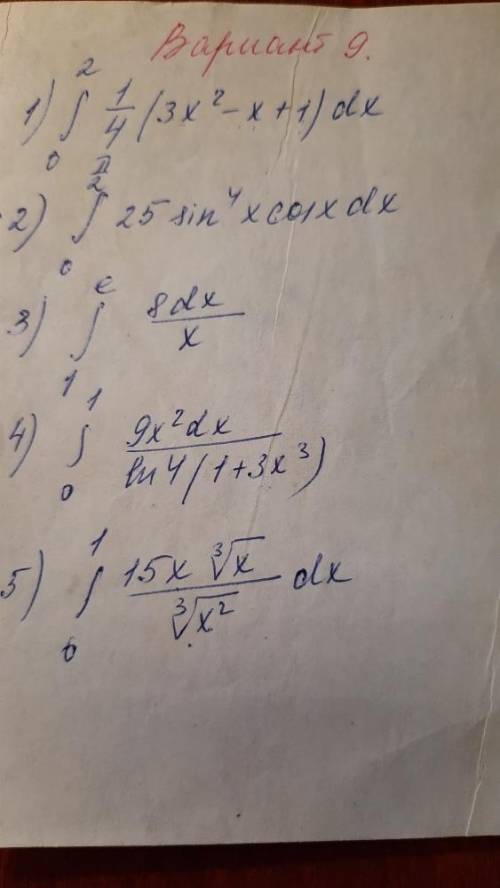 Вариант 9.
1) ∫₀² 1/4 (3x² - x + 1) dx
2) ∫₀^(π/2) 25 sin⁴ x cos x dx
3) ∫₁^e 8dx/x
4) ∫₀¹ 9x²dx / ln4(1+3x³)
5) ∫₀¹ 15x ∛x / ∛x² dx